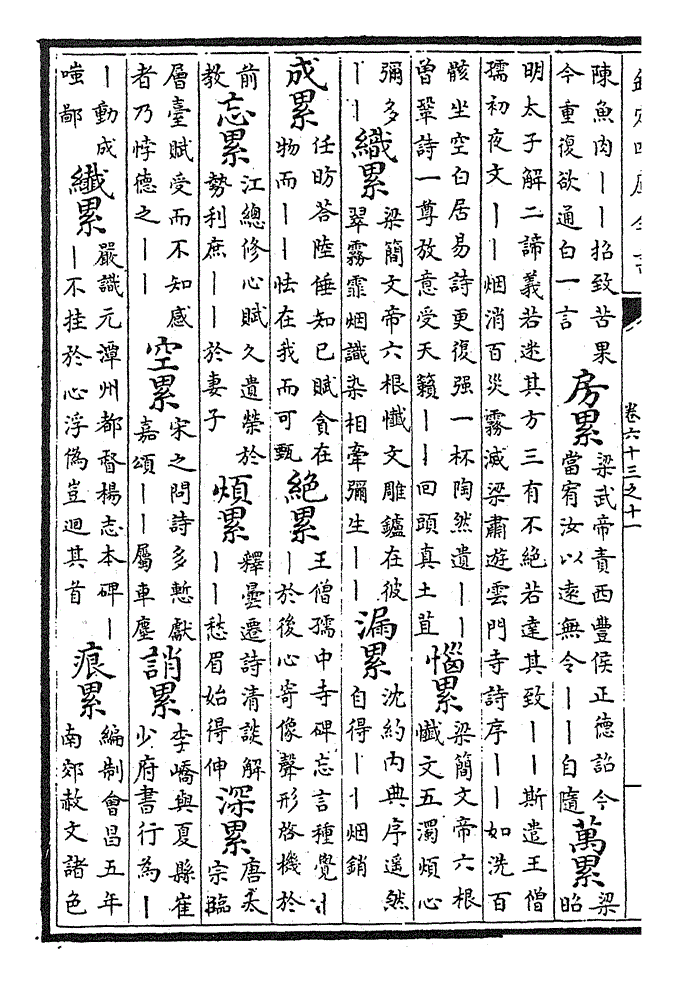 欽定四庫全書
卷六十三之十一
陳魚肉丨丨招致苦果
今重復欲通白一言
房累
梁武帝責西豐侯正德詔今
當宥汝以遠無令丨丨自隨
萬累
梁
昭
明太子解二諦義若迷其方三有不絕若達其致丨丨斯遣王僧
孺初夜文丨丨烟消百災霧滅梁肅遊雲門寺詩序丨丨如洗百
骸坐空白居易詩更復强一杯陶然遺丨丨
曾鞏詩一尊放意受天籟丨丨回頭真土苴
惱累
梁簡文帝六根
懺文五濁煩心
彌多
丨丨
織累
梁簡文帝六根懺文雕鑪在彼
翠霧霏烟識染相牽彌生丨丨
漏累
沈約内典序遥然
自得丨丨烟銷
成累
任昉荅陸倕知己賦貪在
物而丨丨怯在我而可甄
絶累
王僧孺中寺碑忘言種覺丨
丨於後心寄像聲形啓機於
前
教
忘累
江總修心賦久遺榮於
勢利庶丨丨於妻子
煩累
釋曇遷詩清談解
丨丨愁眉始得伸
深累
唐太
宗臨
層臺賦受而不知感
者乃悖德之丨丨
空累
宋之問詩多慙獻
嘉頌丨丨屬車塵
誚累
李嶠與夏縣崔
少府書行為丨
丨動成
嗤鄙
纎累
嚴識元潭州都督楊志本碑丨
丨不挂於心浮僞豈迴其首
痕累
編制會昌五年
南郊赦文諸色